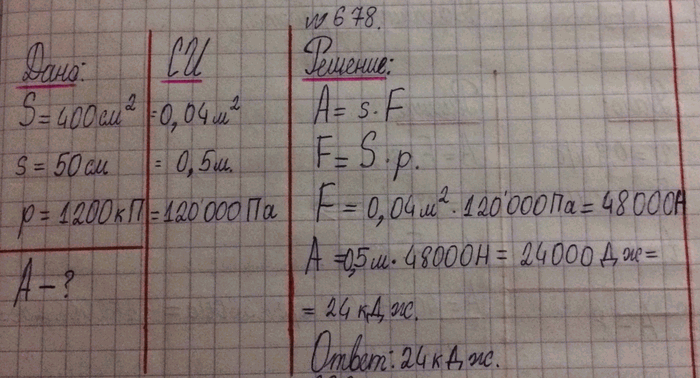 №678.
Дано:
S=400см²
s=50см
p=1200кП
A-?
СИ
=0,04м²
= 0,5м.
=120'000Па
Решение:
A=s·F
F=S·p.
F=0,04м²·120'000Па=48000Н
A=0,5м·48000Н=24000Дж=
=24кДж.
Ответ:24кДж.